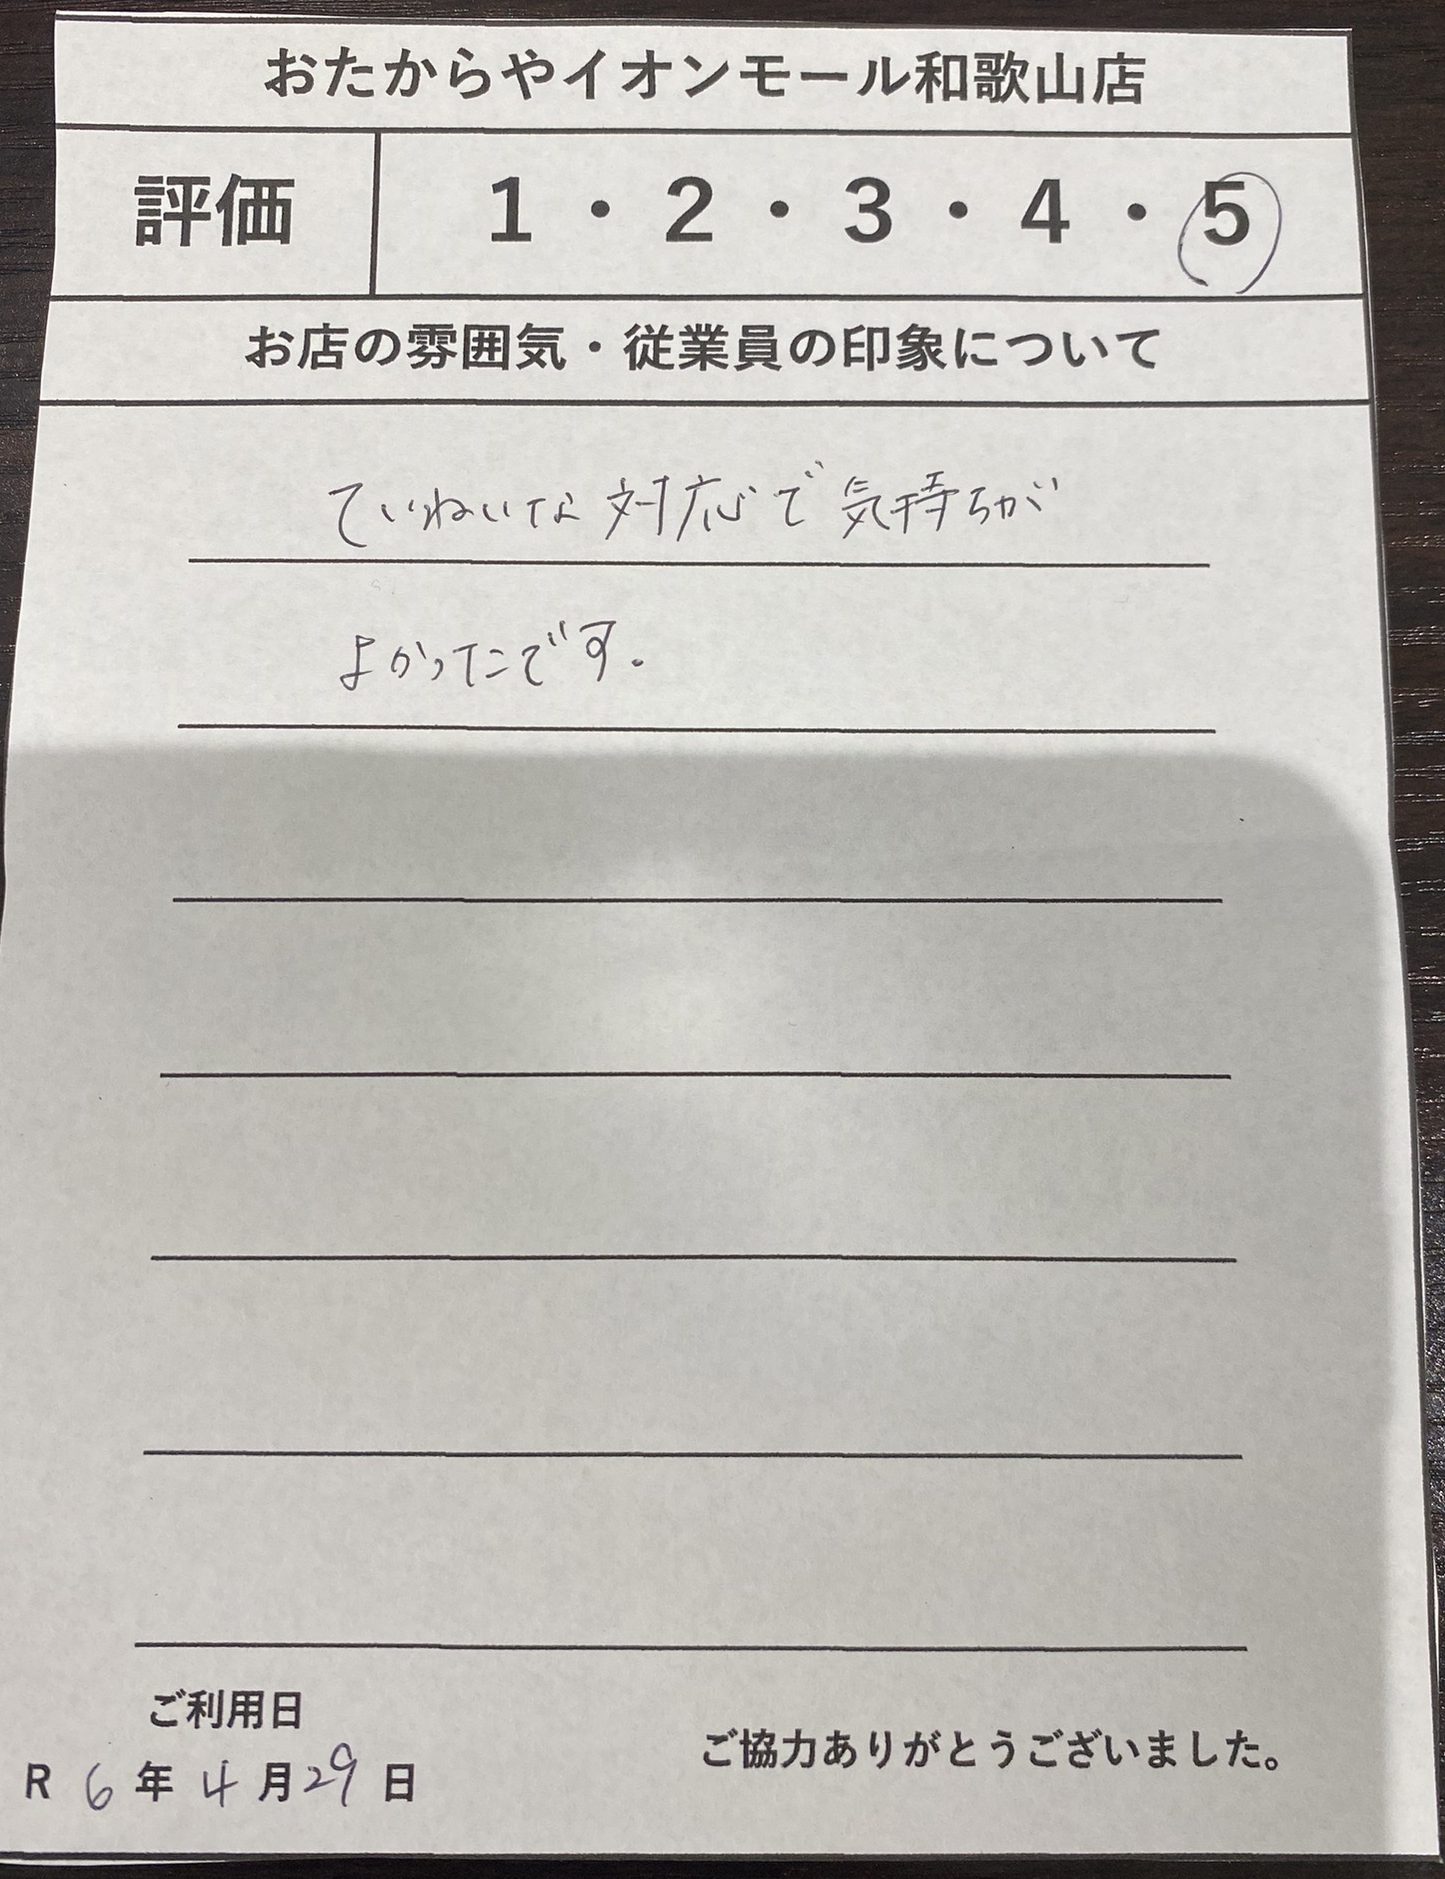 おたからやイオンモール和歌山店
評価 1・2・3・4・5
お店の雰囲気・従業員の印象について
ていねいな対応で気持ちが
よかったです.
ご利用日
R 6 年 4 月 29 日
ご協力ありがとうございました。